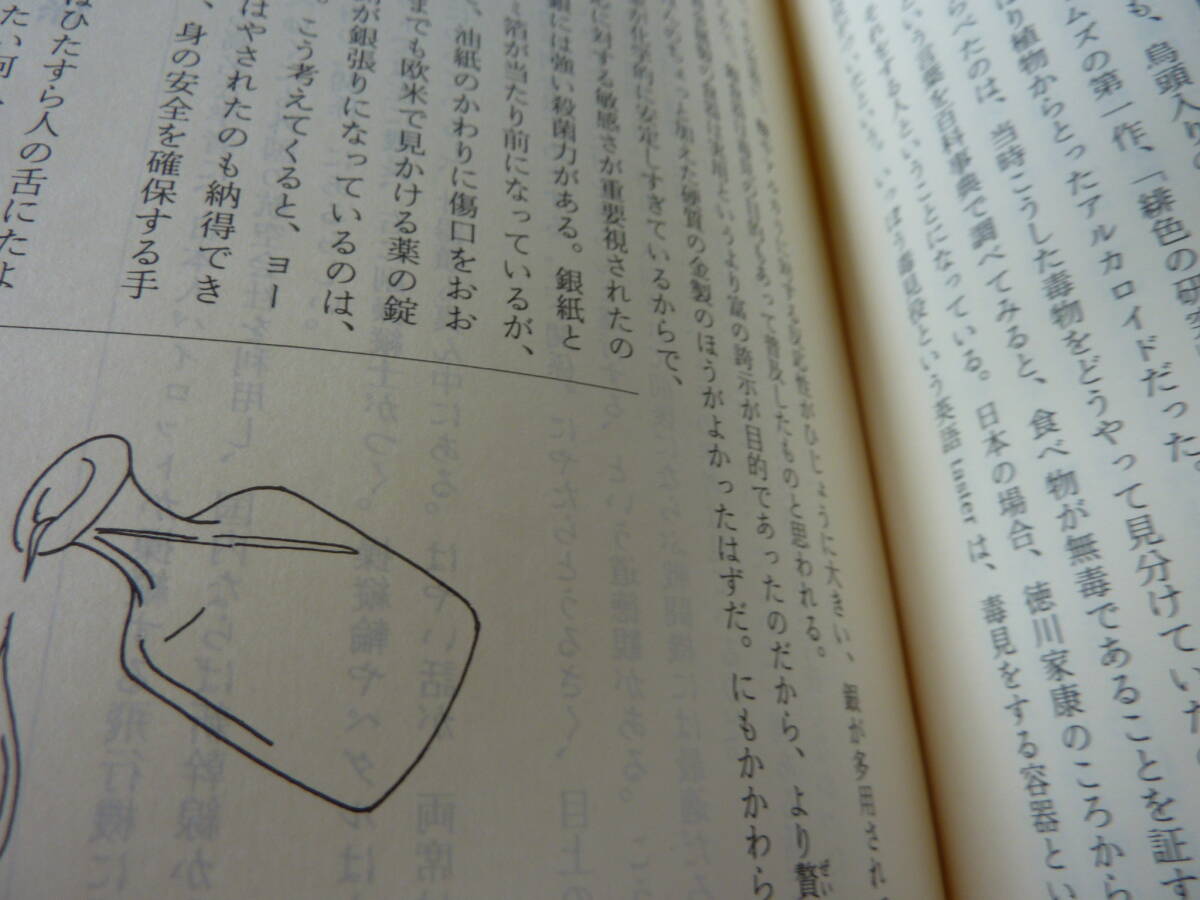 も、烏頭入り
ムズの第一作、「緋色の研究
ぱり植物からとったアルカロイドだった。
らべたのは、当時こうした毒物をどうやって見分けていた
という言葉を百科事典で調べてみると、食べ物が無毒であることを証す
それをする人ということになっている。日本の場合、徳川家康のころから
いっぽう毒見役という英語 taster は、毒見をする容器とい
対する反応性がひじょうに大きい、銀が多用され
目的もあって普及したものと思われる。
実用というより富の誇示が目的であったのだから、より贅
ちょっと加えた硬質の金製のほうがよかったはずだ。にもかかわら
が化学的に安定しすぎているからで、
に対する敏感さが重要視されたの
組には強い殺菌力がある。銀紙と
箔が当たり前になっているが、
、油紙のかわりに傷口をおお
までも欧米で見かける薬の錠
が銀張りになっているのは、
。こう考えてくると、ヨー
はやされたのも納得でき
、身の安全を確保する手
はひたすら人の舌にたよ